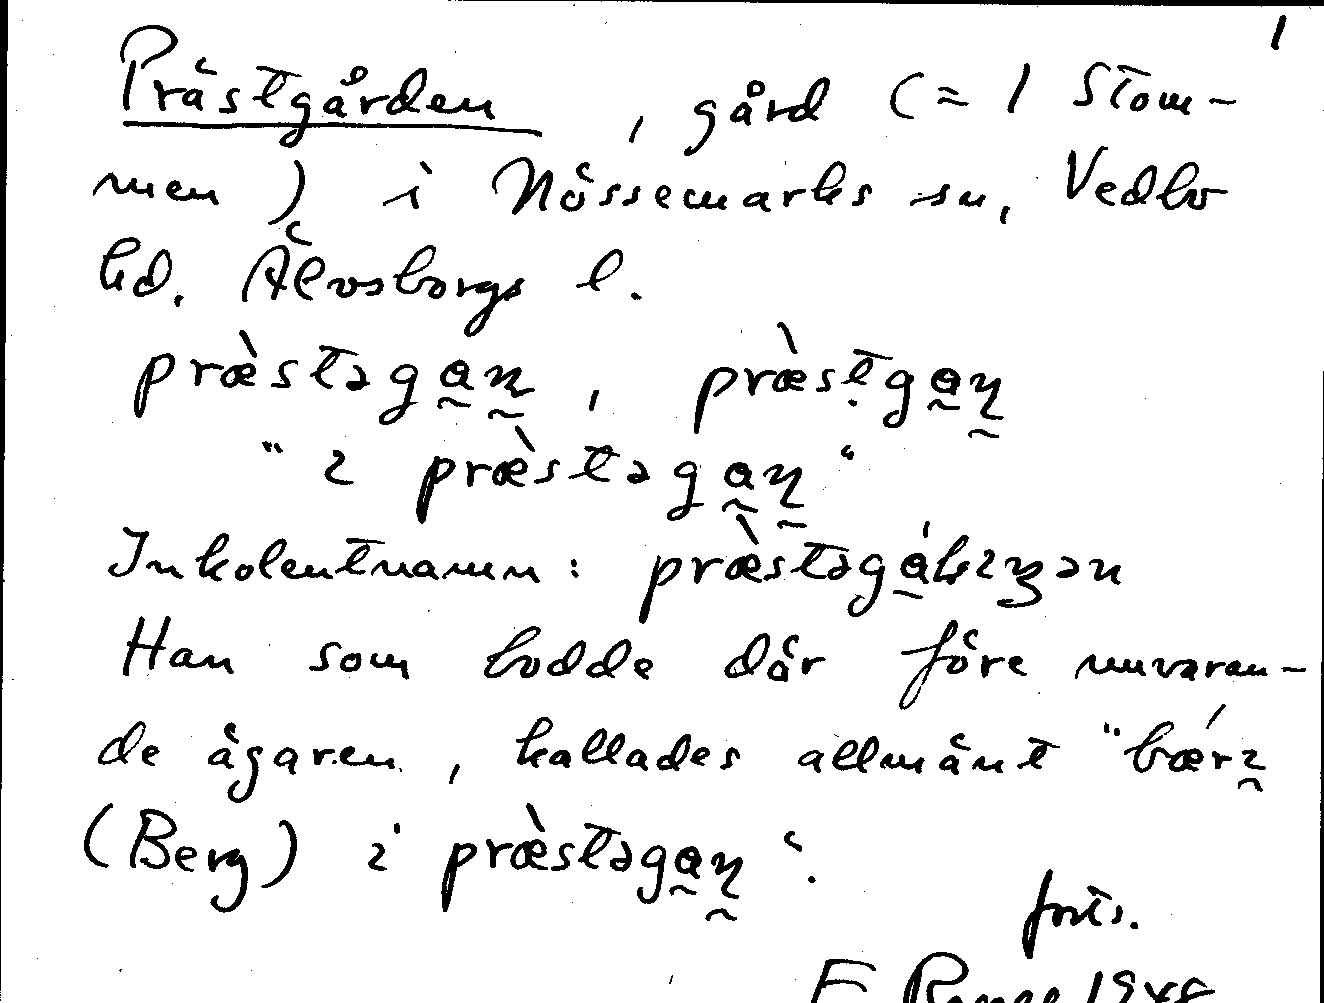 1
Prästgården, gård (= 1 Stom-
men) i Nössemarks sn, Vedbo
hd. Älvsborgs l.
præ̀stəga̰n̰, præ̀sṭga̰ɳ̰
"ɩ præ̀stəga̰ɳ̰"
Inkolentnamn:
Han som bodde där före nuvaran-
de ägaren, kallades allmänt "bǽrɩ̰
(Berg) ɩ præ̀stəga̰ɳ̰".
forts.